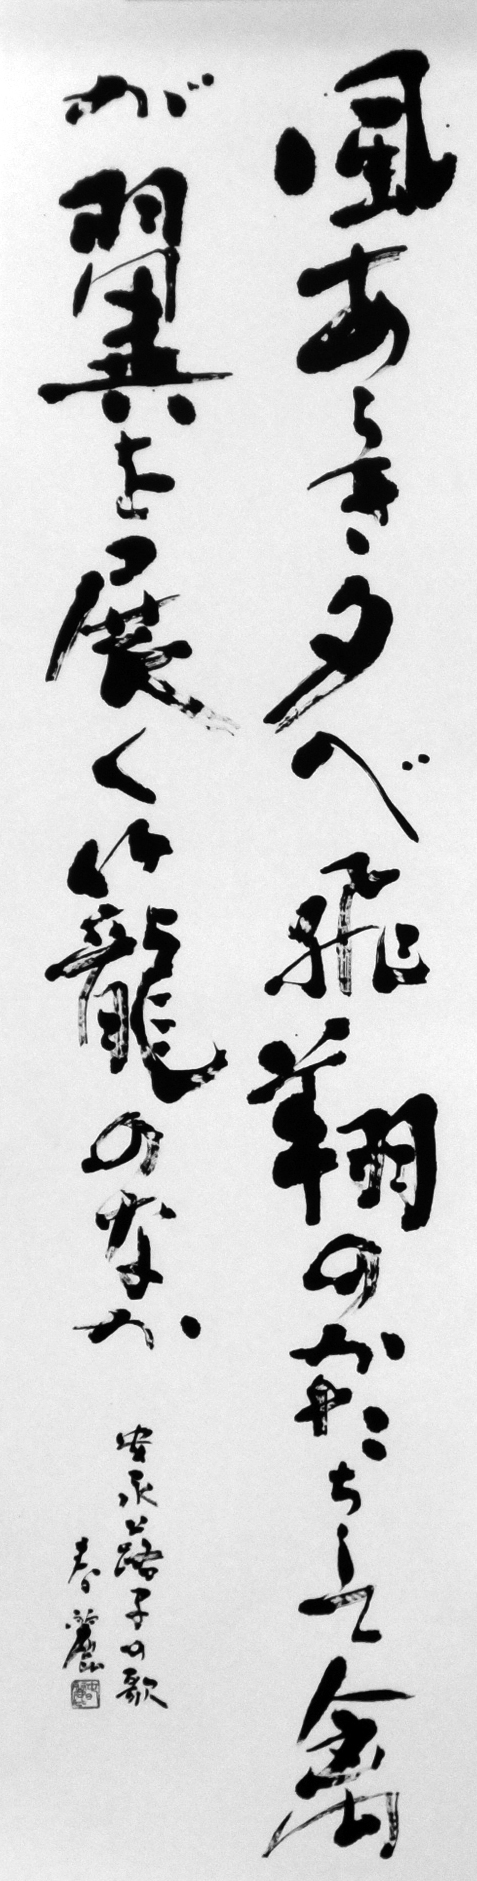 風あらき夕べ飛翔のかたちして禽
が翼を展く伏籠のなか
安永蕗子の歌
春麗